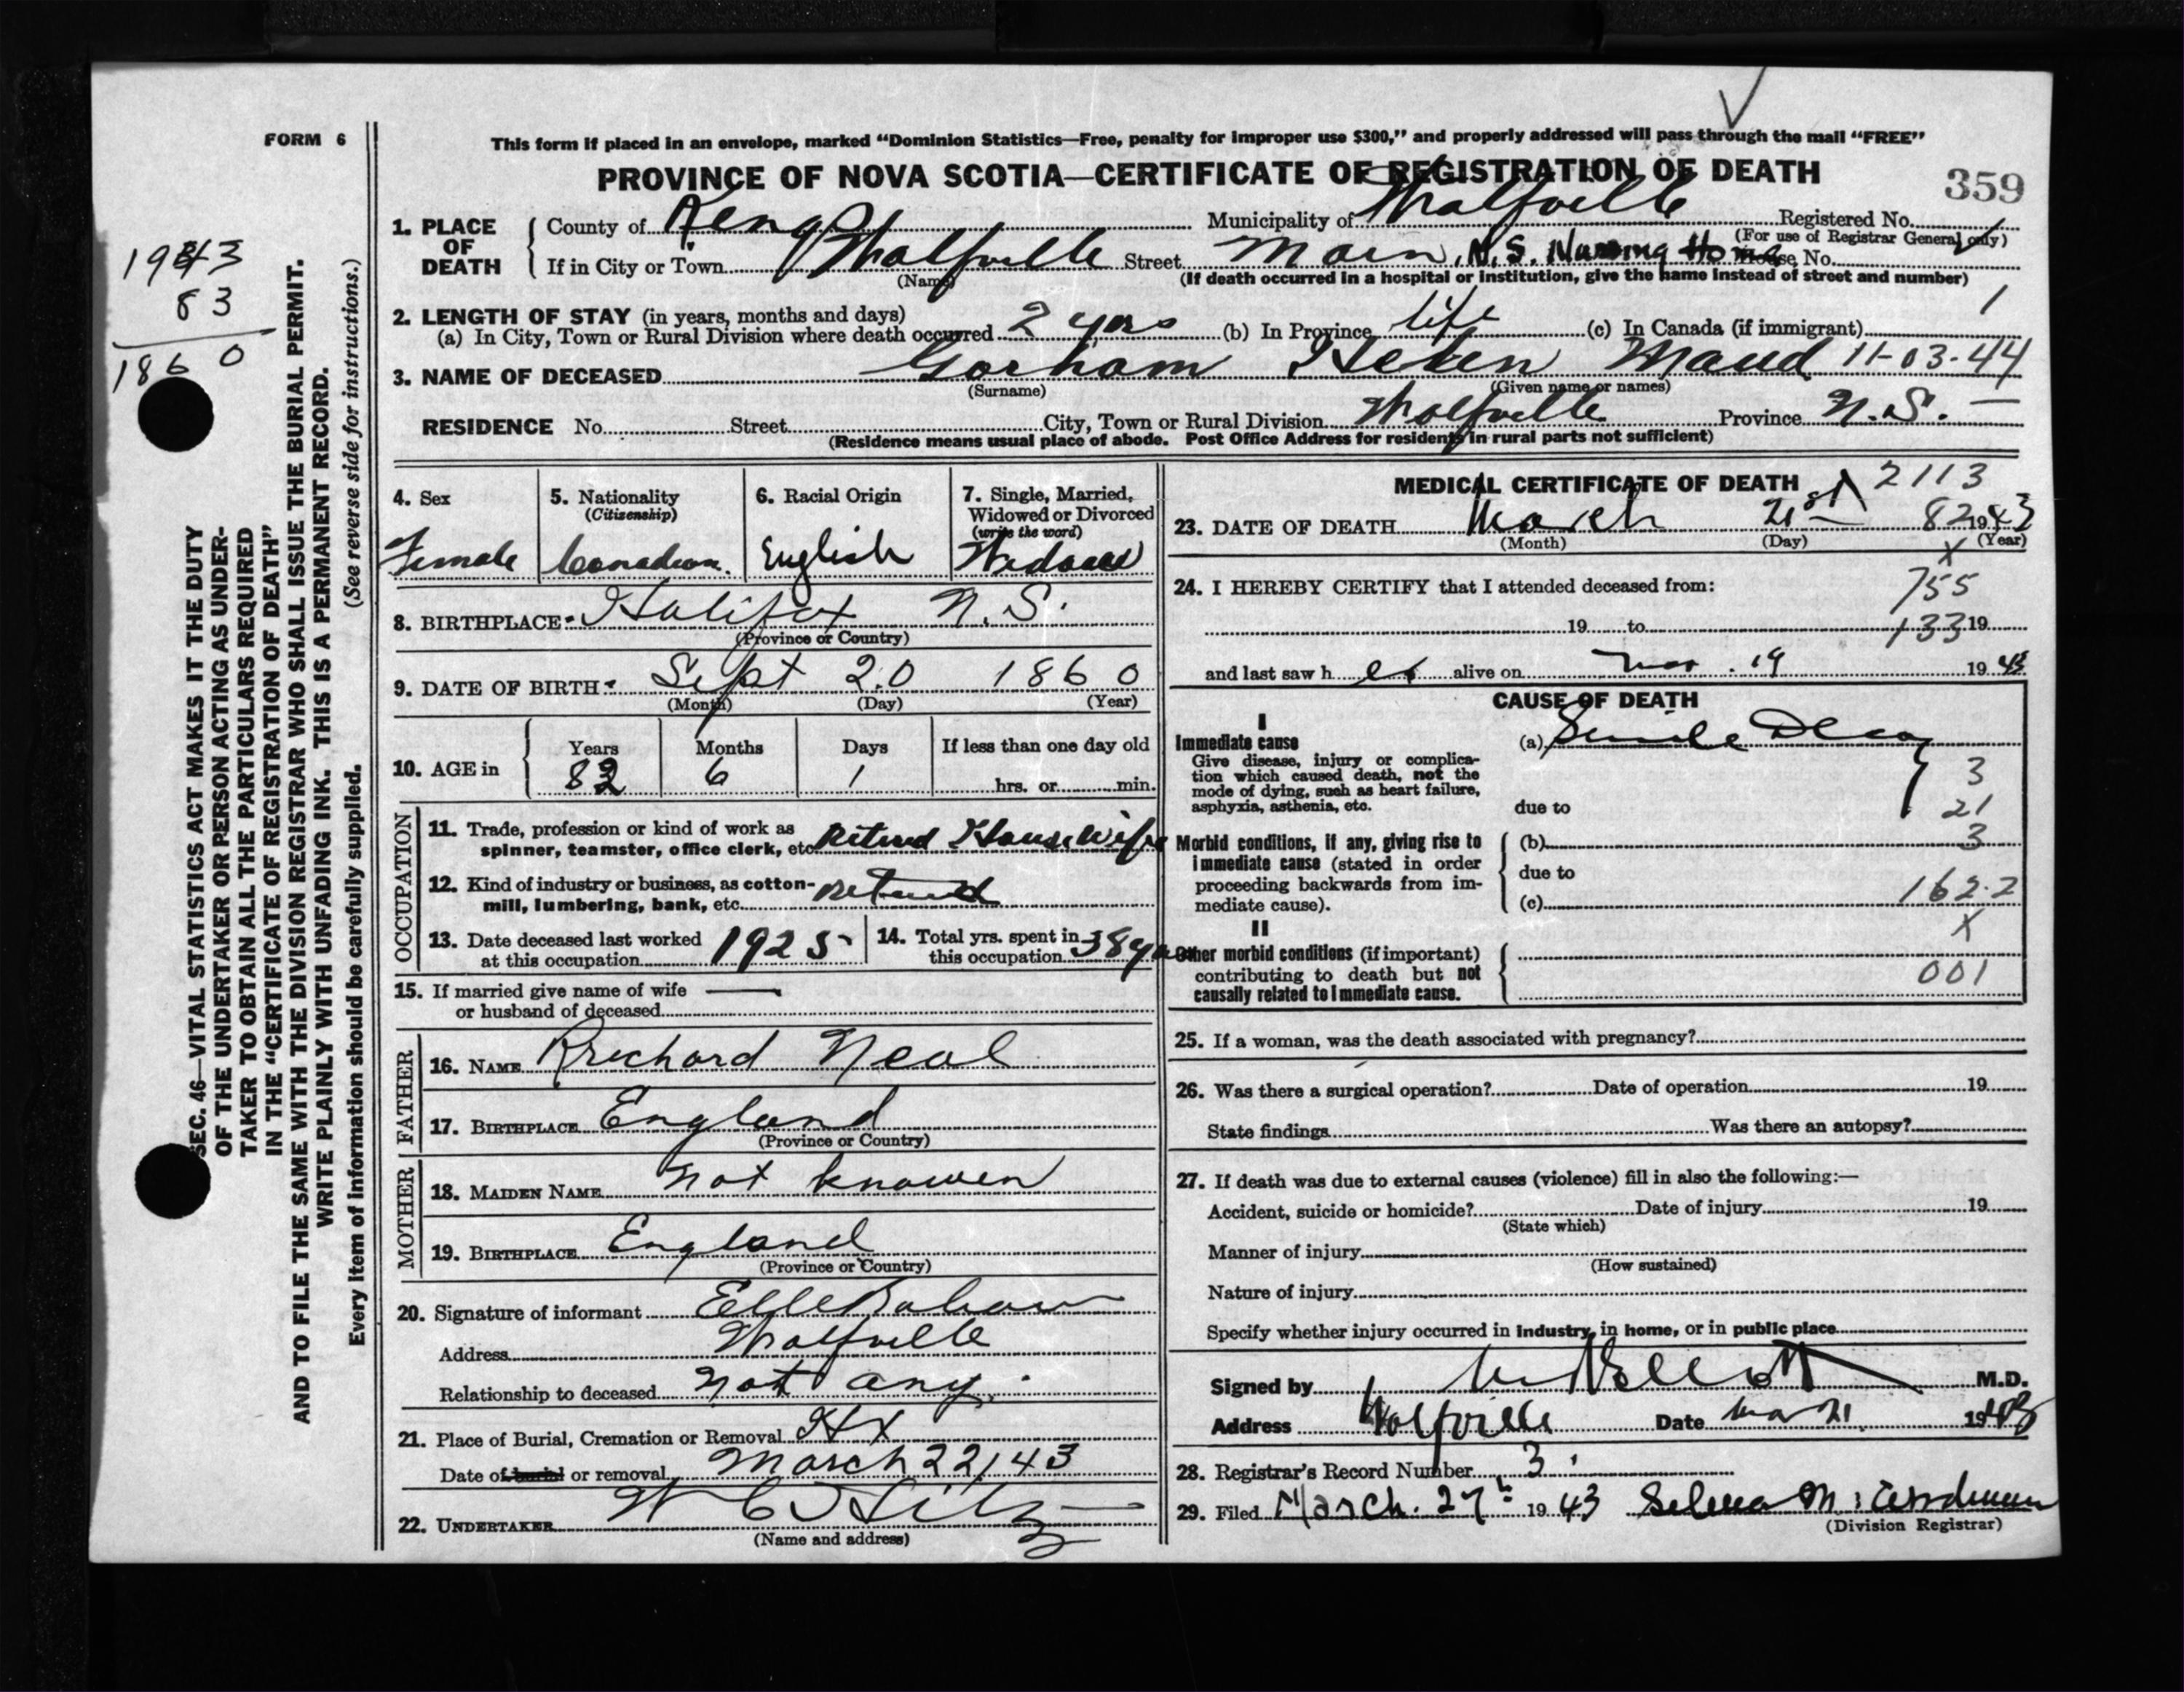 FORM 6
This form if placed in an envelope, marked "Dominion Statistics—Free, penalty for improper use $300," and properly addressed will pass through the mail "FREE"
PROVINCE OF NOVA SCOTIA—CERTIFICATE OF REGISTRATION OF DEATH
359
1943
83
1860
SEC. 46—VITAL STATISTICS ACT MAKES IT THE DUTY
OF THE UNDERTAKER OR PERSON ACTING AS UNDER-
TAKER TO OBTAIN ALL THE PARTICULARS REQUIRED
IN THE "CERTIFICATE OF REGISTRATION OF DEATH"
AND TO FILE THE SAME WITH THE DIVISION REGISTRAR WHO SHALL ISSUE THE BURIAL PERMIT.
WRITE PLAINLY WITH UNFADING INK. THIS IS A PERMANENT RECORD.
Every item of information should be carefully supplied. (See reverse side for instructions.)
1. PLACE OF DEATH County of Kings Municipality of Wolfville Registered No.
(For use of Registrar General only)
If in City or Town Wolfville Street Main, N.S. Nursing Home House No.
(Name) (If death occurred in a hospital or institution, give the name instead of street and number)
2. LENGTH OF STAY (in years, months and days) 1
(a) In City, Town or Rural Division where death occurred 2 yrs (b) In Province life (c) In Canada (if immigrant)
3. NAME OF DECEASED Gorham Helen Maud 11-03-44
(Surname) (Given name or names)
RESIDENCE No. Street City, Town or Rural Division Wolfville Province N.S. —
(Residence means usual place of abode. Post Office Address for residents in rural parts not sufficient)
4. Sex Female
5. Nationality (Citizenship) Canadian.
6. Racial Origin English
7. Single, Married, Widowed or Divorced (write the word) Widowed
8. BIRTHPLACE Halifax N.S.
(Province or Country)
9. DATE OF BIRTH Sept 20 1860
(Month) (Day) (Year)
10. AGE in Years 82 Months 6 Days 1 If less than one day old hrs. or min.
OCCUPATION
11. Trade, profession or kind of work as
spinner, teamster, office clerk, etc. Retired Housewife
12. Kind of industry or business, as cotton-
mill, lumbering, bank, etc. Retired
13. Date deceased last worked
at this occupation 1925
14. Total yrs. spent in
this occupation 38 yrs
15. If married give name of wife —
or husband of deceased
FATHER
16. NAME Rrichard Neal
17. BIRTHPLACE England
(Province or Country)
MOTHER
18. MAIDEN NAME not knowen
19. BIRTHPLACE England
(Province or Country)
20. Signature of informant
Address Wolfville
Relationship to deceased not any.
21. Place of Burial, Cremation or Removal Hx
Date of burial or removal March 22/43
22. UNDERTAKER W C Hiltz
(Name and address)
MEDICAL CERTIFICATE OF DEATH 2113
23. DATE OF DEATH March 21st 82 1943
(Month) (Day) (Year)
X
24. I HEREBY CERTIFY that I attended deceased from: 755
19 to 133 19
and last saw her alive on Mar. 19 1943
CAUSE OF DEATH
I
Immediate cause (a) Senile Decay
Give disease, injury or complica-
tion which caused death, not the 3
mode of dying, such as heart failure,
asphyxia, asthenia, etc. due to 21
Morbid conditions, if any, giving rise to (b) 3
immediate cause (stated in order
proceeding backwards from im- due to
mediate cause). (c) 162.2
II X
Other morbid conditions (if important)
contributing to death but not 001
causally related to immediate cause.
25. If a woman, was the death associated with pregnancy?
26. Was there a surgical operation? Date of operation 19
State findings Was there an autopsy?
27. If death was due to external causes (violence) fill in also the following:—
Accident, suicide or homicide? Date of injury 19
(State which)
Manner of injury
(How sustained)
Nature of injury
Specify whether injury occurred in industry, in home, or in public place
Signed by M.D.
Address Wolfville Date Mar 21 1943
28. Registrar's Record Number 3
29. Filed March. 27th 1943 Selena M.
(Division Registrar)